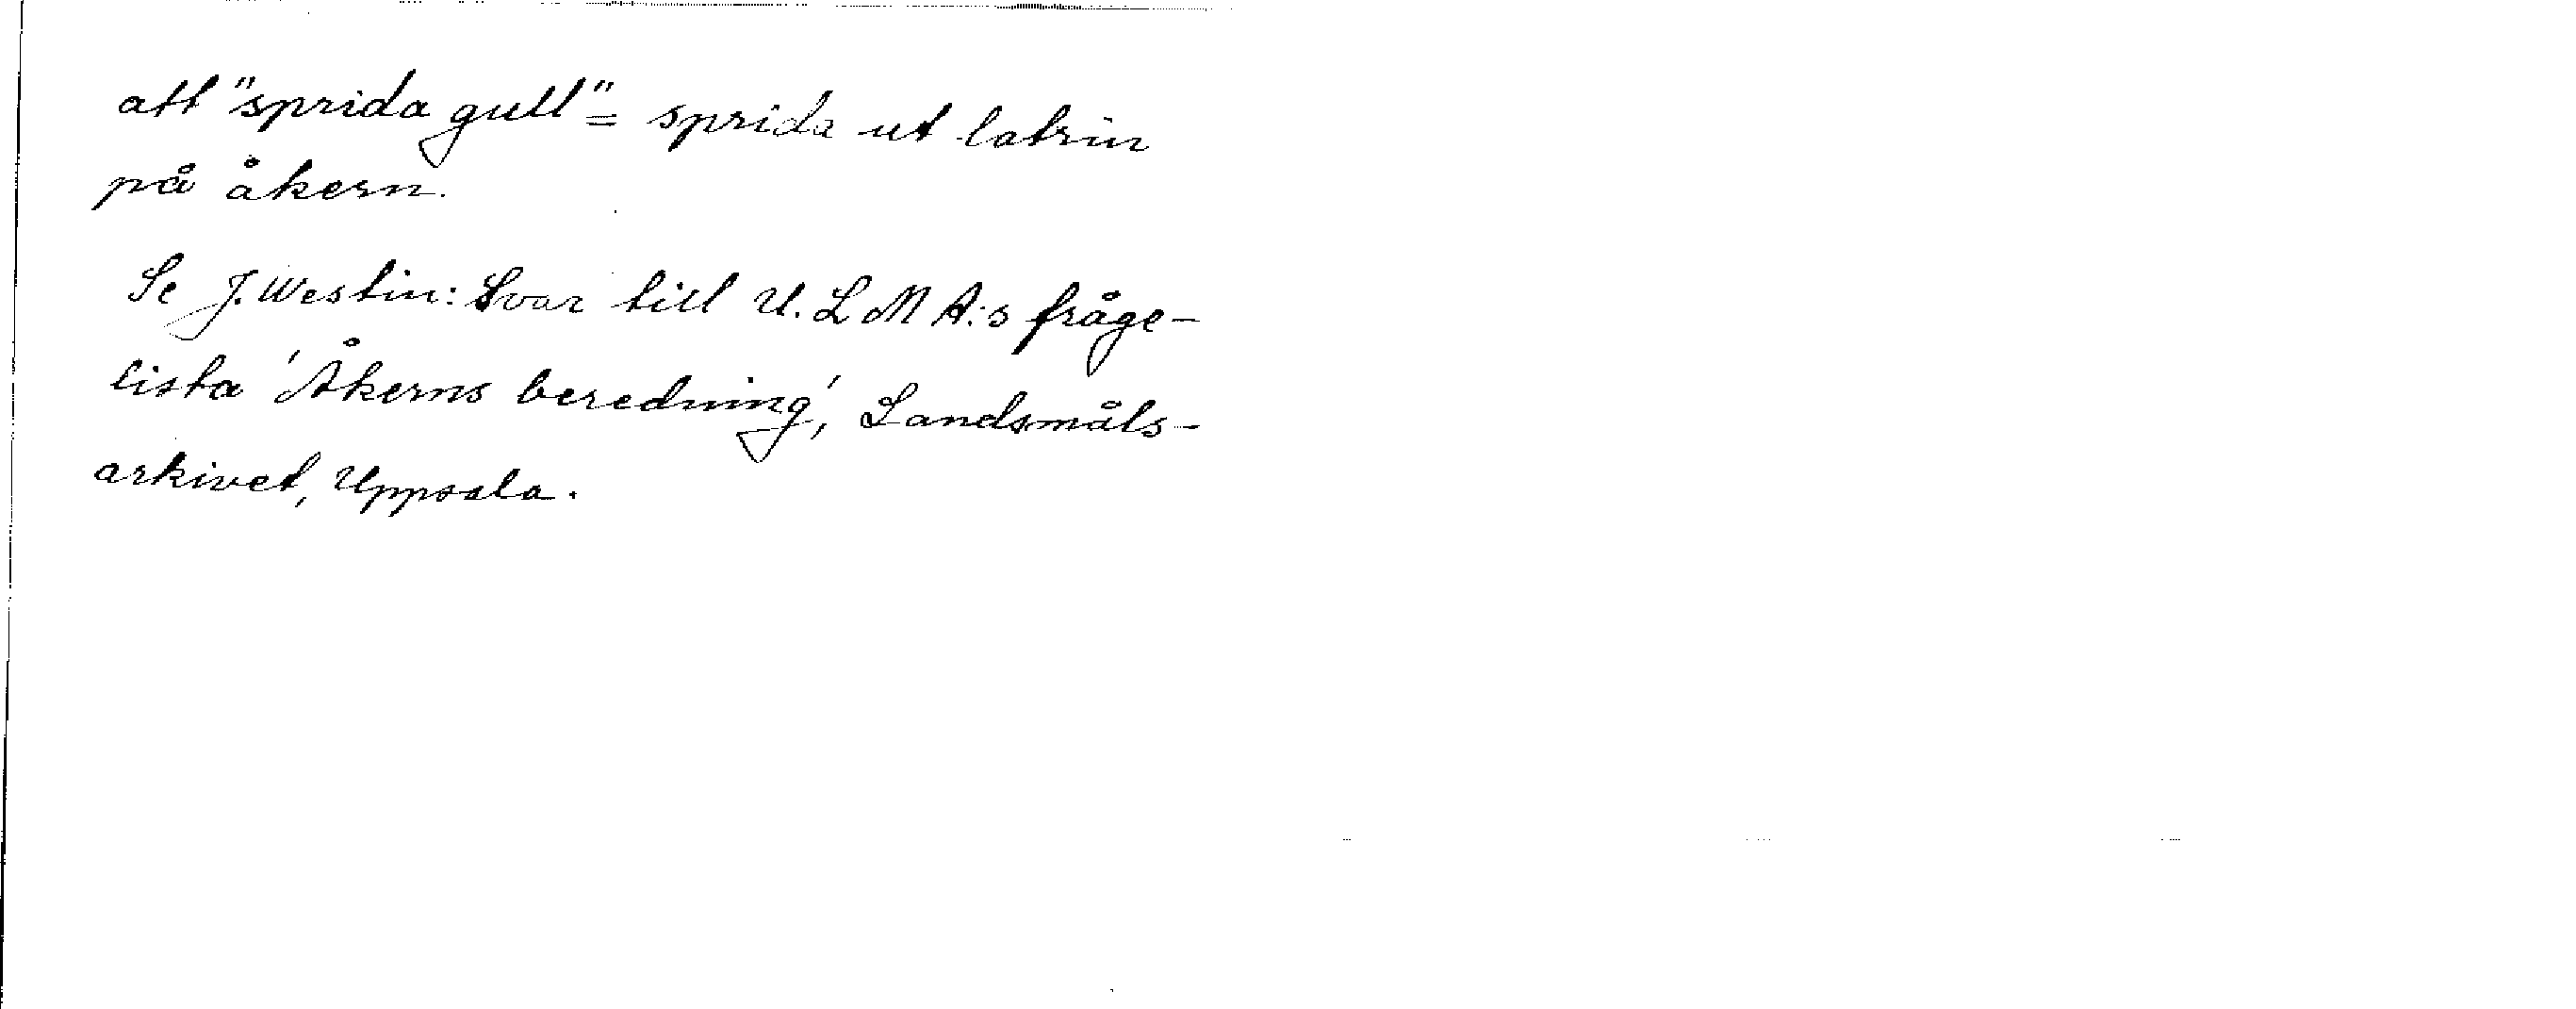 att "sprida gull" = sprida ut latrin
på åkern.
Se J. Westin: Svar till U. L M A:s fråge-
lista 'Åkerns beredning', Landsmåls-
arkivet, Uppsala.